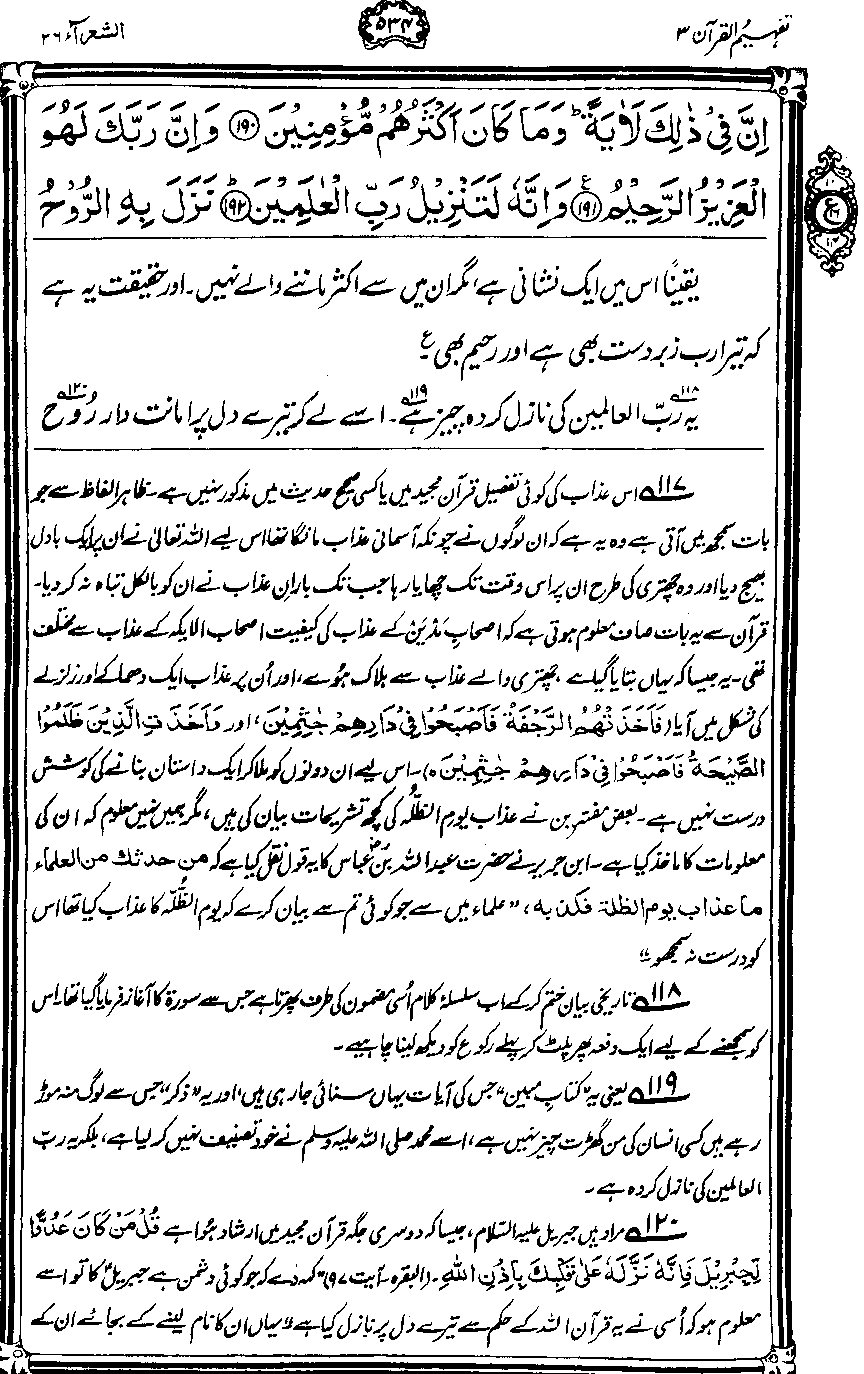 تفہیم القرآن ۳
۵۳۴
الشعرآء ۲۶
اِنَّ فِیْ ذٰلِكَ لَاٰیَةً ؕ وَمَا كَانَ اَكْثَرُهُمْ مُّؤْمِنِیْنَ ﴿۱۹۰﴾ وَاِنَّ رَبَّكَ لَهُوَ
الْعَزِیْزُ الرَّحِیْمُ ﴿۱۹۱﴾ ع وَاِنَّهٗ لَتَنْزِیْلُ رَبِّ الْعٰلَمِیْنَ ﴿۱۹۲﴾ ؕ نَزَلَ بِهِ الرُّوْحُ
یقیناً اس میں ایک نشانی ہے، مگر ان میں سے اکثر ماننے والے نہیں۔ اور حقیقت یہ ہے
کہ تیرا رب زبردست بھی ہے اور رحیم بھی ع
یہ۱۱۸ ربّ العالمین کی نازل کردہ چیز ہے۱۱۹۔ اسے لے کر تیرے دل پر امانت دار رُوح۱۲۰
۱۱۷ اس عذاب کی کوئی تفصیل قرآن مجید میں یا کسی صحیح حدیث میں مذکور نہیں ہے۔ ظاہر الفاظ سے جو
بات سمجھ میں آتی ہے وہ یہ ہے کہ ان لوگوں نے چونکہ آسمانی عذاب مانگا تھا اس لیے اللہ تعالیٰ نے ان پر ایک بادل
بھیج دیا اور وہ چھتری کی طرح ان پر اس وقت تک چھایا رہا جب تک بارانِ عذاب نے ان کو بالکل تباہ نہ کر دیا۔
قرآن سے یہ بات صاف معلوم ہوتی ہے کہ اصحابِ مَدْیَن کے عذاب کی کیفیت اصحاب الایکہ کے عذاب سے مختلف
تھی۔ یہ جیسا کہ یہاں بتایا گیا ہے، چھتری والے عذاب سے ہلاک ہوئے، اور اُن پر عذاب ایک دھماکے اور زلزلے
کی شکل میں آیا (فَاَخَذَتْهُمُ الرَّجْفَةُ فَاَصْبَحُوْا فِیْ دَارِهِمْ جٰثِمِیْنَ، اور وَاَخَذَتِ الَّذِیْنَ ظَلَمُوا
الصَّیْحَةُ فَاَصْبَحُوْا فِیْ دِیَارِهِمْ جٰثِمِیْنَ ۝)۔ اس لیے ان دونوں کو ملا کر ایک داستان بنانے کی کوشش
درست نہیں ہے۔ بعض مفسّرین نے عذاب یوم الظُّلّہ کی کچھ تشریحات بیان کی ہیں، مگر ہمیں نہیں معلوم کہ ان کی
معلومات کا ماخذ کیا ہے۔ ابن جریر نے حضرت عبداللہ بن عباسؓ کا یہ قول نقل کیا ہے کہ من حدثك من العلماء
ما عذاب یوم الظلة فكذبه، ”علماء میں سے جو کوئی تم سے بیان کرے کہ یوم الظُّلّہ کا عذاب کیا تھا اس
کو درست نہ سمجھو“۔
۱۱۸ تاریخی بیان ختم کر کے اب سلسلۂ کلام اُسی مضمون کی طرف پھرتا ہے جس سے سورۃ کا آغاز فرمایا گیا تھا۔ اس
کو سمجھنے کے لیے ایک دفعہ پھر پلٹ کر پہلے رکوع کو دیکھ لینا چاہیے۔
۱۱۹ یعنی یہ ”کتابِ مبین“ جس کی آیات یہاں سنائی جا رہی ہیں، اور یہ ”ذکر“ جس سے لوگ منہ موڑ
رہے ہیں کسی انسان کی من گھڑت چیز نہیں ہے، اسے محمد صلی اللہ علیہ وسلم نے خود تصنیف نہیں کر لیا ہے، بلکہ یہ ربّ
العالمین کی نازل کردہ ہے۔
۱۲۰ مراد ہیں جبریل علیہ السّلام، جیسا کہ دوسری جگہ قرآن مجید میں ارشاد ہُوا ہے قُلْ مَنْ كَانَ عَدُوًّا
لِّجِبْرِیْلَ فَاِنَّهٗ نَزَّلَهٗ عَلٰی قَلْبِكَ بِاِذْنِ اللّٰهِ۔ (البقرہ۔ آیت ۹۷) ”کہہ دے کہ جو کوئی دشمن ہے جبریلؑ کا تو اسے
معلوم ہو کہ اُسی نے یہ قرآن اللہ کے حکم سے تیرے دل پر نازل کیا ہے“ یہاں ان کا نام لینے کے بجائے ان کے